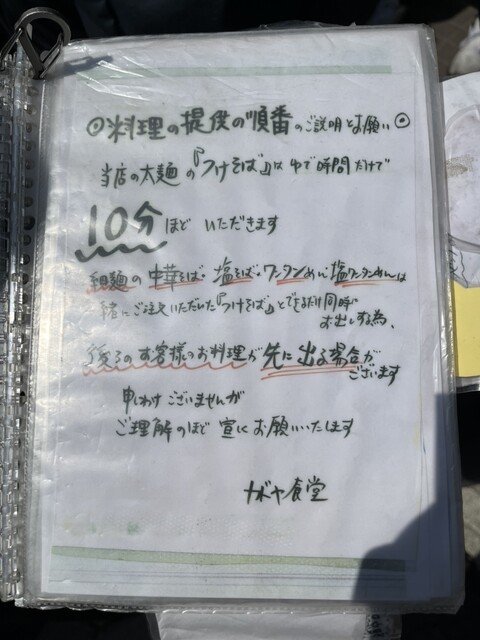 ◎料理の提供の順番のご説明とお願い◎
当店の太麺の『つけそば』はゆで時間だけで
10分ほどいただきます
細麺の中華そば・塩そば・ワンタンめん・塩ワンタンめんは
一緒にご注文いただいた『つけそば』とできるだけ同時に
お出しする為、
後ろのお客様のお料理が先に出る場合が
ございます
申しわけございませんが
ご理解のほど宜しくお願いいたします
ナボヤ食堂